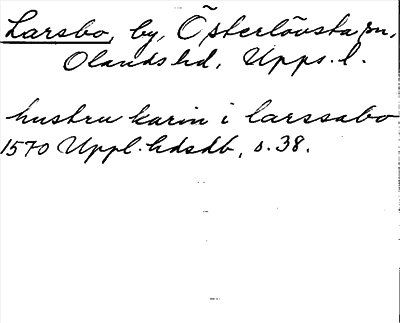 Larsbo, by, Österlövsta sn,
Olands hd, Upps. l.
hustru karin i larssabo
1570 Uppl. hdsdb, s. 38.